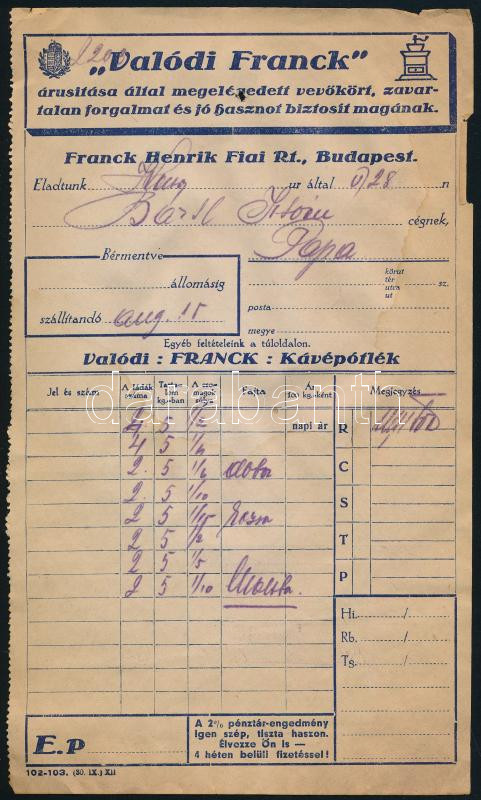 „Valódi Franck”
árusitása által megelégedett vevőkört, zavar-
talan forgalmat és jó hasznot biztosit magának.
Franck Henrik Fiai Rt., Budapest.
Eladtunk ur által VI/28 n
István cégnek,
Pápa
Bérmentve
állomásig
szállitandó aug. 15
körut
tér
utca
ut
sz.
posta
megye
Egyéb feltételeink a túloldalon.
Valódi : FRANCK : Kávépótlék
Jel és szám A ládák száma Tartalom kg.-ban A csomagok súlya Fajta Ár kg.-ként Megjegyzés
4 5 1/2 napi ár R
4 5 1/6
2 5 1/6 doboz C
2 5 1/10
2 5 1/15 S
2 5 1/2
2 5 1/5 T
2 5 1/10 P
Hi. /
Rb. /
Ts. /
E.p
A 2% pénztár-engedmény
igen szép, tiszta haszon.
Élvezze Ön is —
4 héten belüli fizetéssel!
102-103. (30. IX.) XII
darabanth